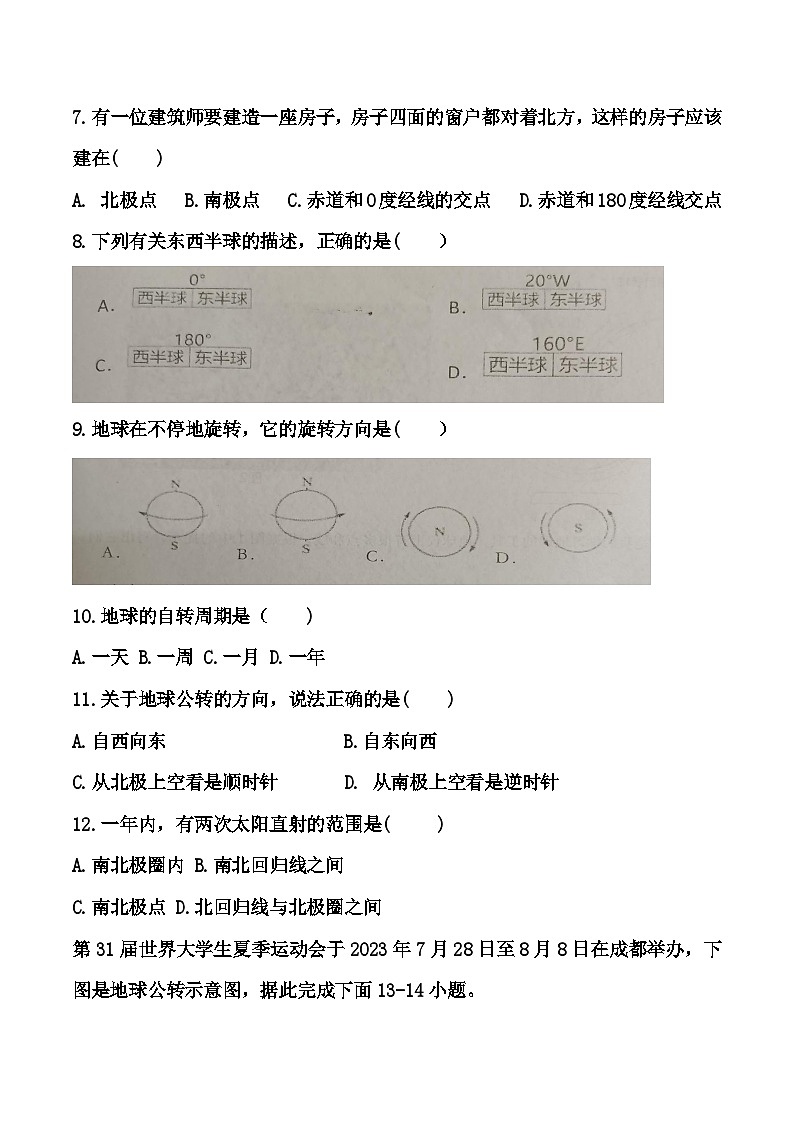 7.有一位建筑师要建造一座房子,房子四面的窗户都对着北方,这样的房子应该
建在(　　)
A. 北极点 B.南极点 C.赤道和0度经线的交点 D.赤道和180度经线交点
8.下列有关东西半球的描述,正确的是(　　)
0° 20°W
A. 西半球 东半球 B. 西半球 东半球
180° 160°E
C. 西半球 东半球 D. 西半球 东半球
9.地球在不停地旋转,它的旋转方向是(　　)
N N
N S
S S
A. B. C. D.
10.地球的自转周期是(　　)
A.一天 B.一周 C.一月 D.一年
11.关于地球公转的方向,说法正确的是(　　)
A.自西向东 B.自东向西
C.从北极上空看是顺时针 D. 从南极上空看是逆时针
12.一年内,有两次太阳直射的范围是(　　)
A.南北极圈内 B.南北回归线之间
C.南北极点 D.北回归线与北极圈之间
第31届世界大学生夏季运动会于2023年7月28日至8月8日在成都举办,下
图是地球公转示意图,据此完成下面13-14小题。